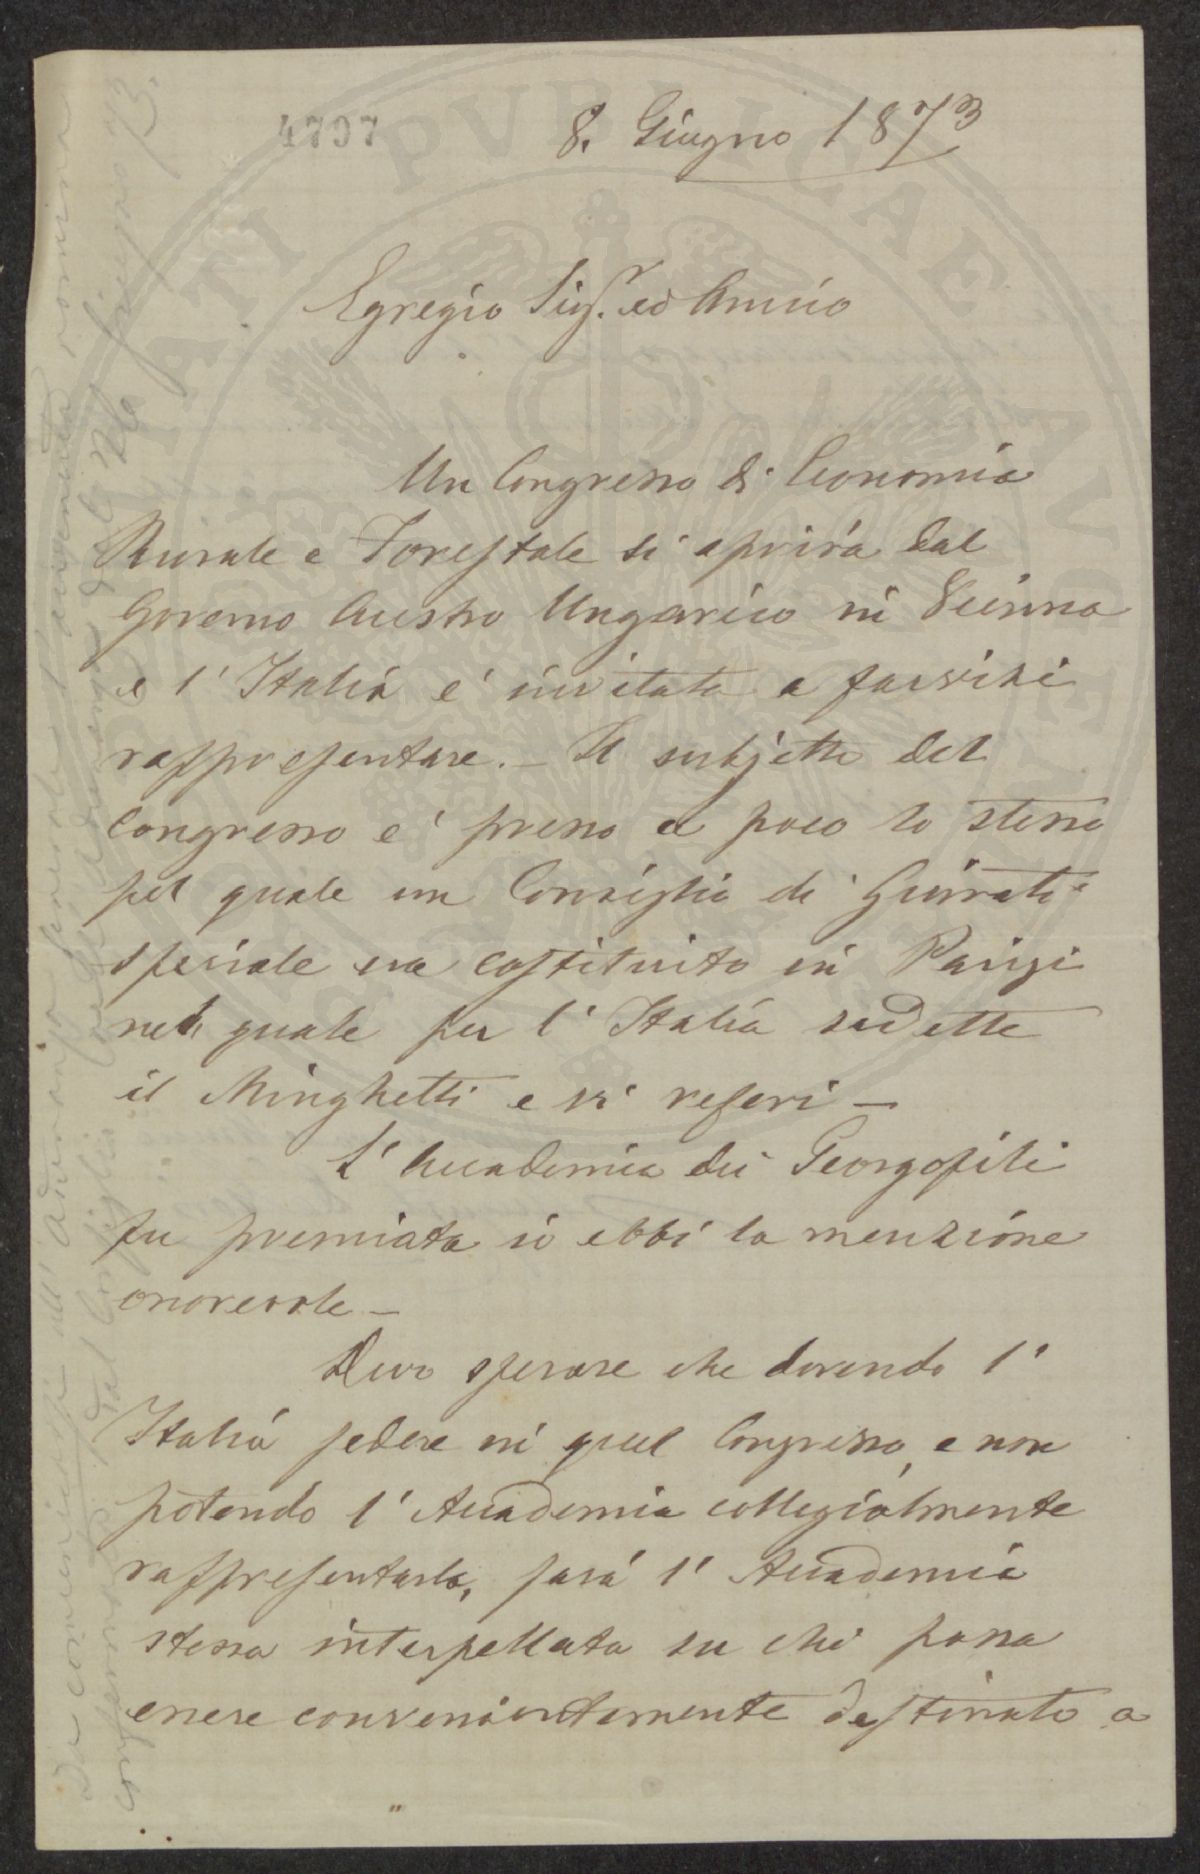 4797
8. Giugno 1873
Egregio Sigr. ed Amico
Un Congresso di Economia
Rurale e Forestale si aprirà dal
Governo Austro Ungarico in Vienna
e l'Italia é invitata a farvisi
rappresentare. — Il subjetto del
Congresso e' presso a poco lo stesso
pel quale un Consiglio di Giurati
speciale era costituito in Parigi
nel quale per l'Italia sedette
il Minghetti e vi referi —
L'Accademia dei Georgofili
fu premiata io ebbi la menzione
onorevole —
Devo sperare che dovendo l'
Italia sedere in quel Congresso, e non
potendo l'Accademia collegialmente
rappresentarla, sará l'Accademia
stessa interpellata su chi possa
essere convenientemente destinato a
Da comunicarsi all'Adunanza generale
confermato dal Consiglio
PVBLICAE